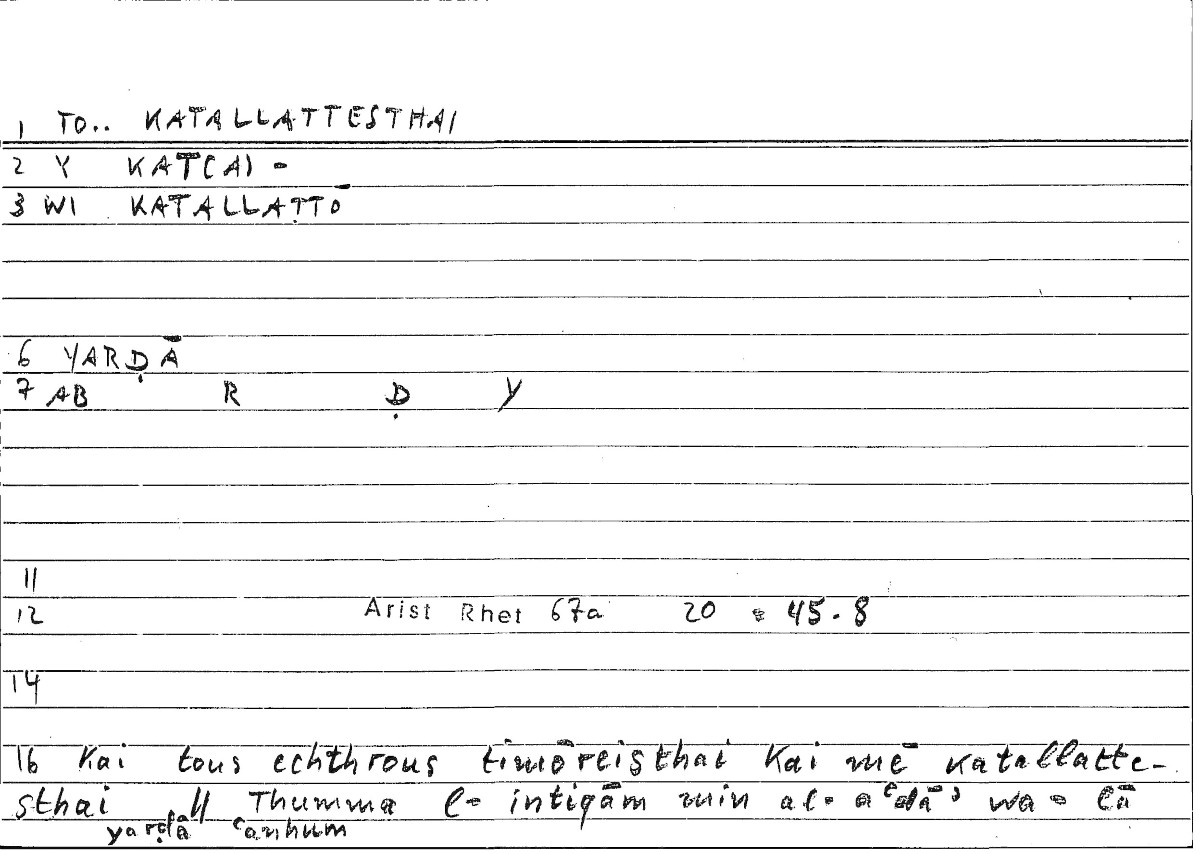 1 TO.. KATALLATTESTHAI
2 Y KAT(A) -
3 WI KATALLATTŌ
6 YARḌĀ
7 AB R Ḍ Y
11
12 Arist Rhet 67a 20 = 45.8
14
16 Kai tous echthrous timōreisthai kai mē katallatte-
sthai // Thumma l- intiqām min al- aʿdāʾ wa- lā
yarḍā ʿanhum